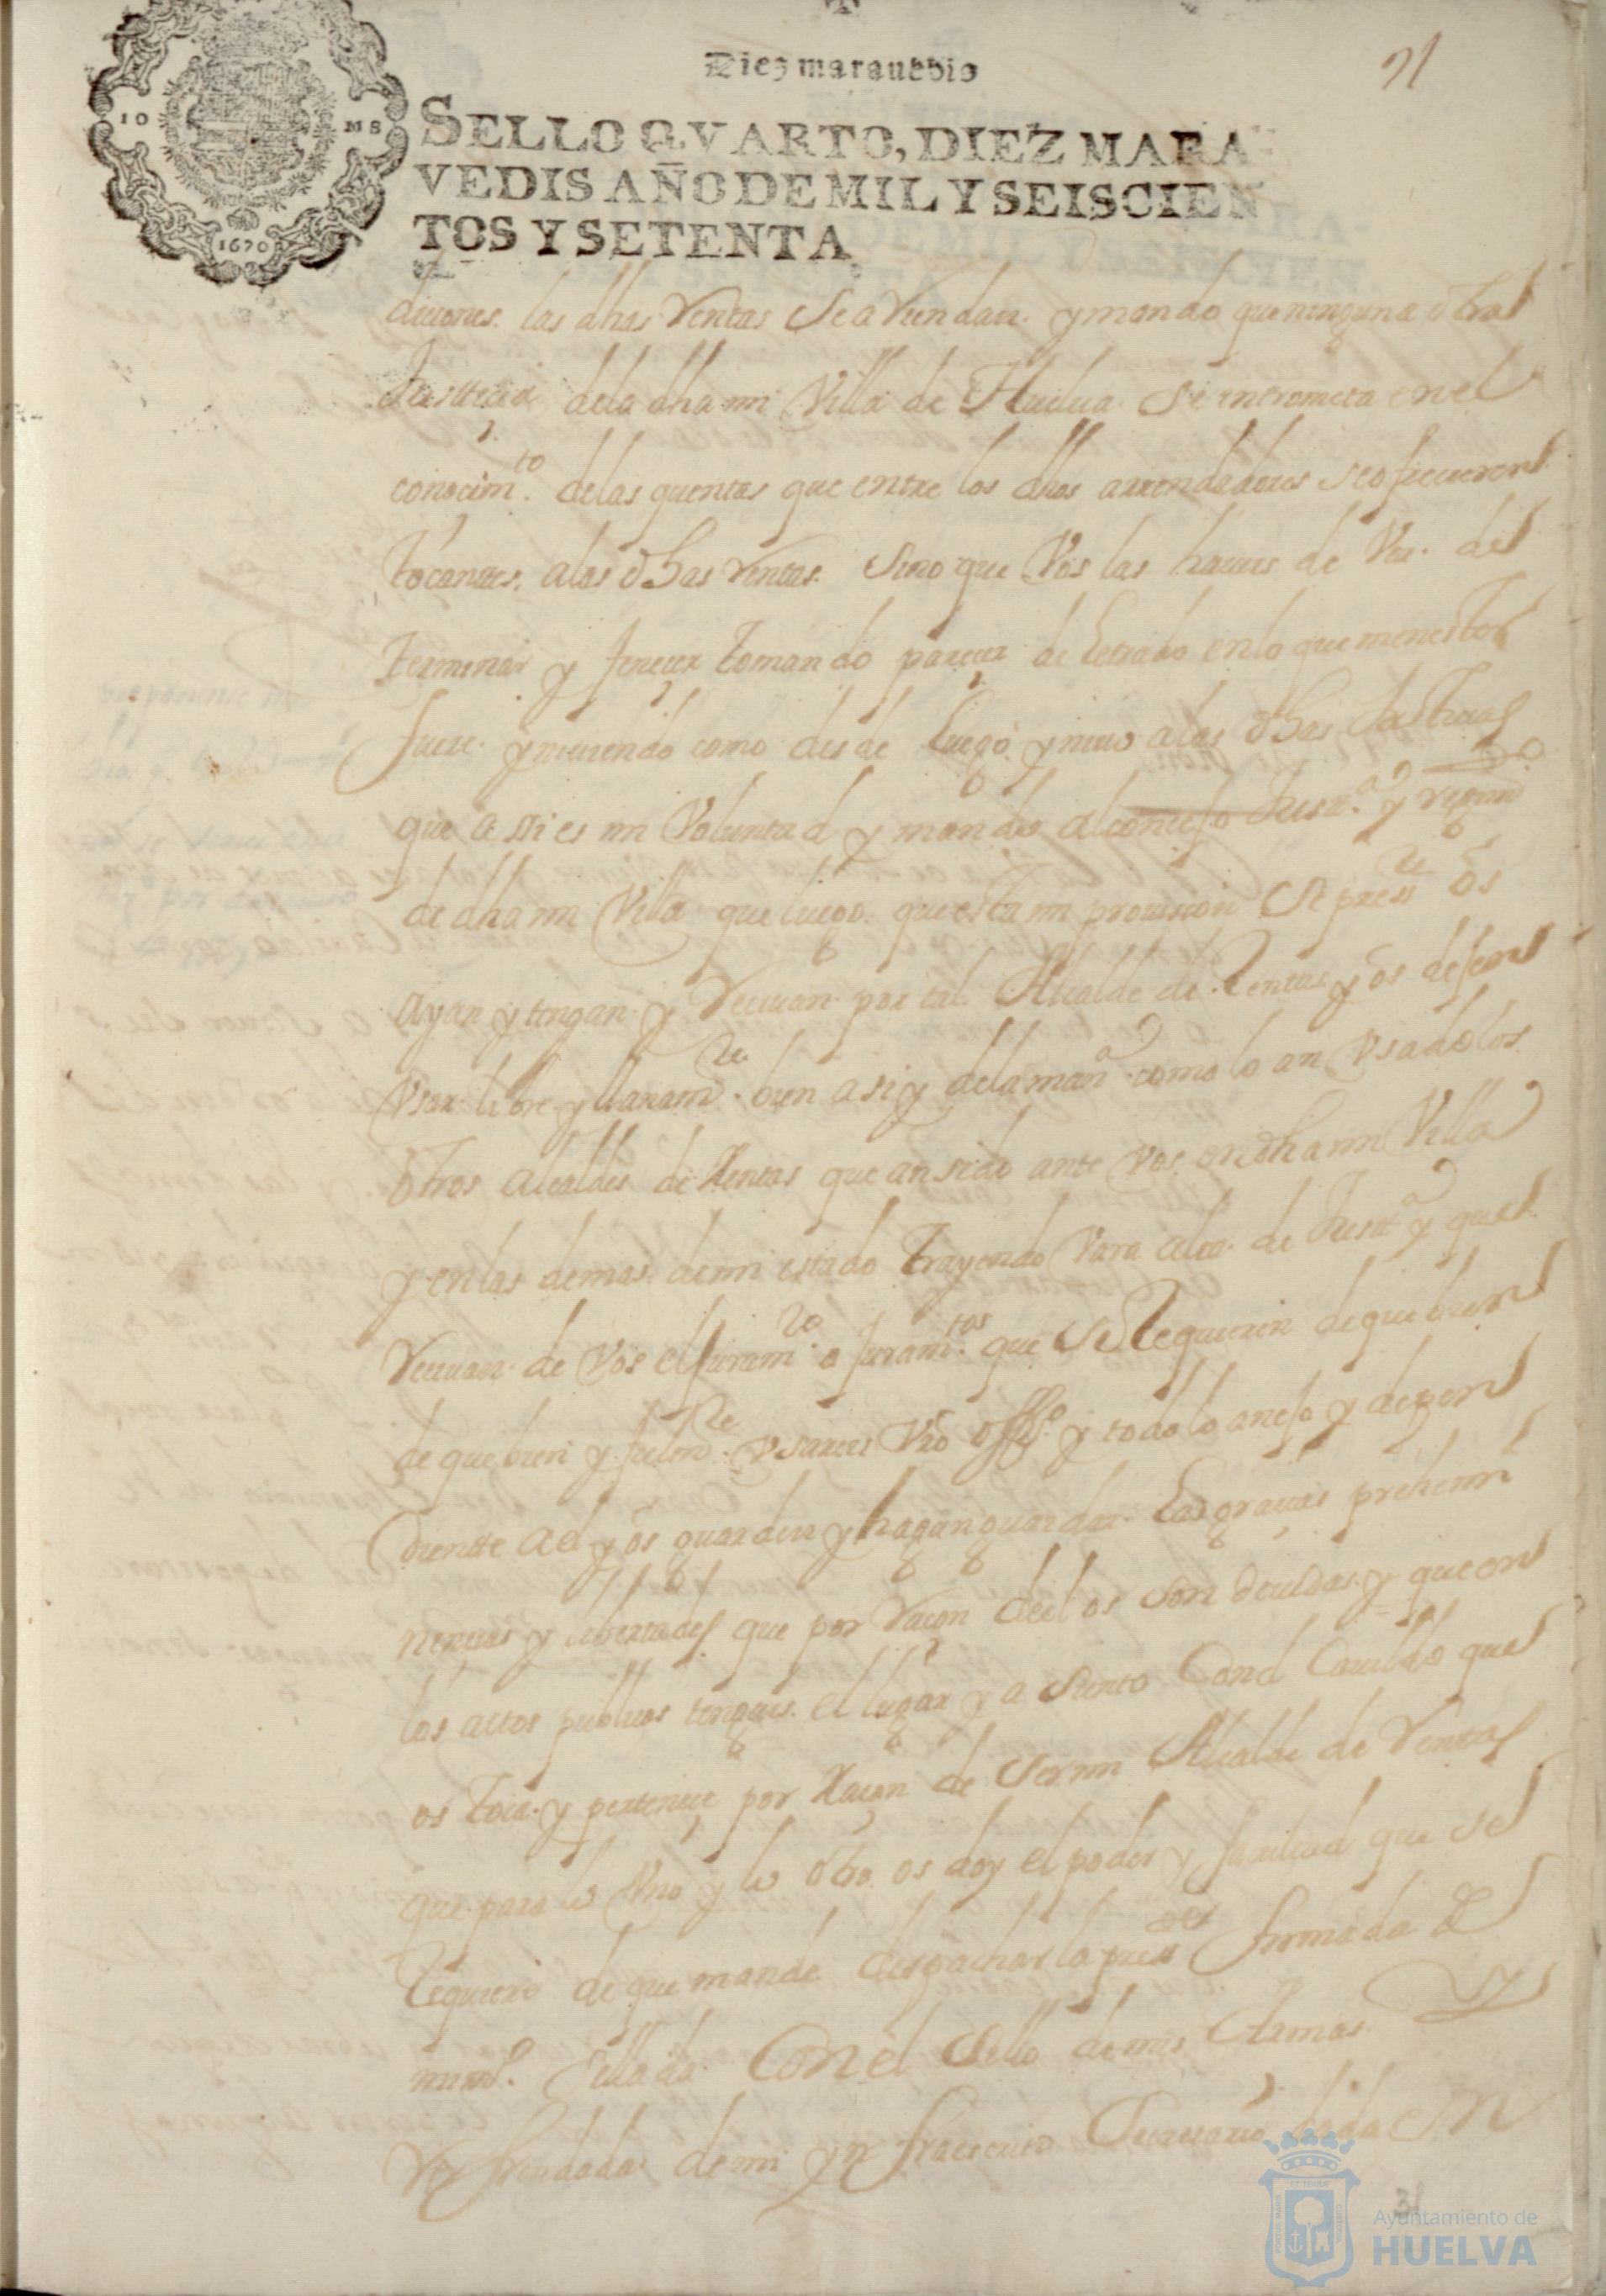 Diez marauedis
21
10 MS
1670
SELLO QVARTO, DIEZ MARA
VEDIS AÑO DE MIL Y SEISCIEN
TOS Y SETENTA
diciones. las dhas Rentas Se a Riendan. y mando que ninguna otra
Justticia dela dha mi Villa de Huelua Se intrometa en el
conocimto. delas quentas que entre los dhos arrendadores se ofrecieren
tocanttes. alas dhas Rentas. Sino que Vos las haueis de Ver. de
terminar y fenecer tomando parecer de Letrado en lo que menester
fuere. yniuiendo como desde Luego yniuo alas dhas Justicias
que assi es mi Voluntad y mando al concejo Justa. y regimdo
de dha mi Villa que luego. que esta mi prouision Se presste os
ayan y tengan y Reciuan por tal. Alcalde de Rentas y os dejen
Vsar libre y llanamte. bien asi y dela mana. como lo an Vsado los
otros alcaldes de Rentas que an sido ante Vos. en dha mi Villa
y en las demas de mi estado trayendo Vara alta de Justa. y que
Reciuan de Vos el Juramto. o Juramtos. que Se Requieren de que bien
de que bien y fielmte. Vsareis Vro offo. y todo lo anejo y depen
diente a el y os guarden y hagan guardar. Las gracias prehemi
nencias y libertades que por Racon dellos Son deuidas y que en
los actos publicos tengais. el lugar y asiento Con el Cauildo que
os toca y pertenece por Racon de Ser mi Alcalde de Rentas
que para lo Vno y lo otro. os doy el poder y facultad que se
Requiere de que mande despachar la presste firmada de
mi mo. Sellada Con el Sello de mis Armas
Refrendada de mi ynfraescrito Secretario dada En
31
Ayuntamiento de
HUELVA